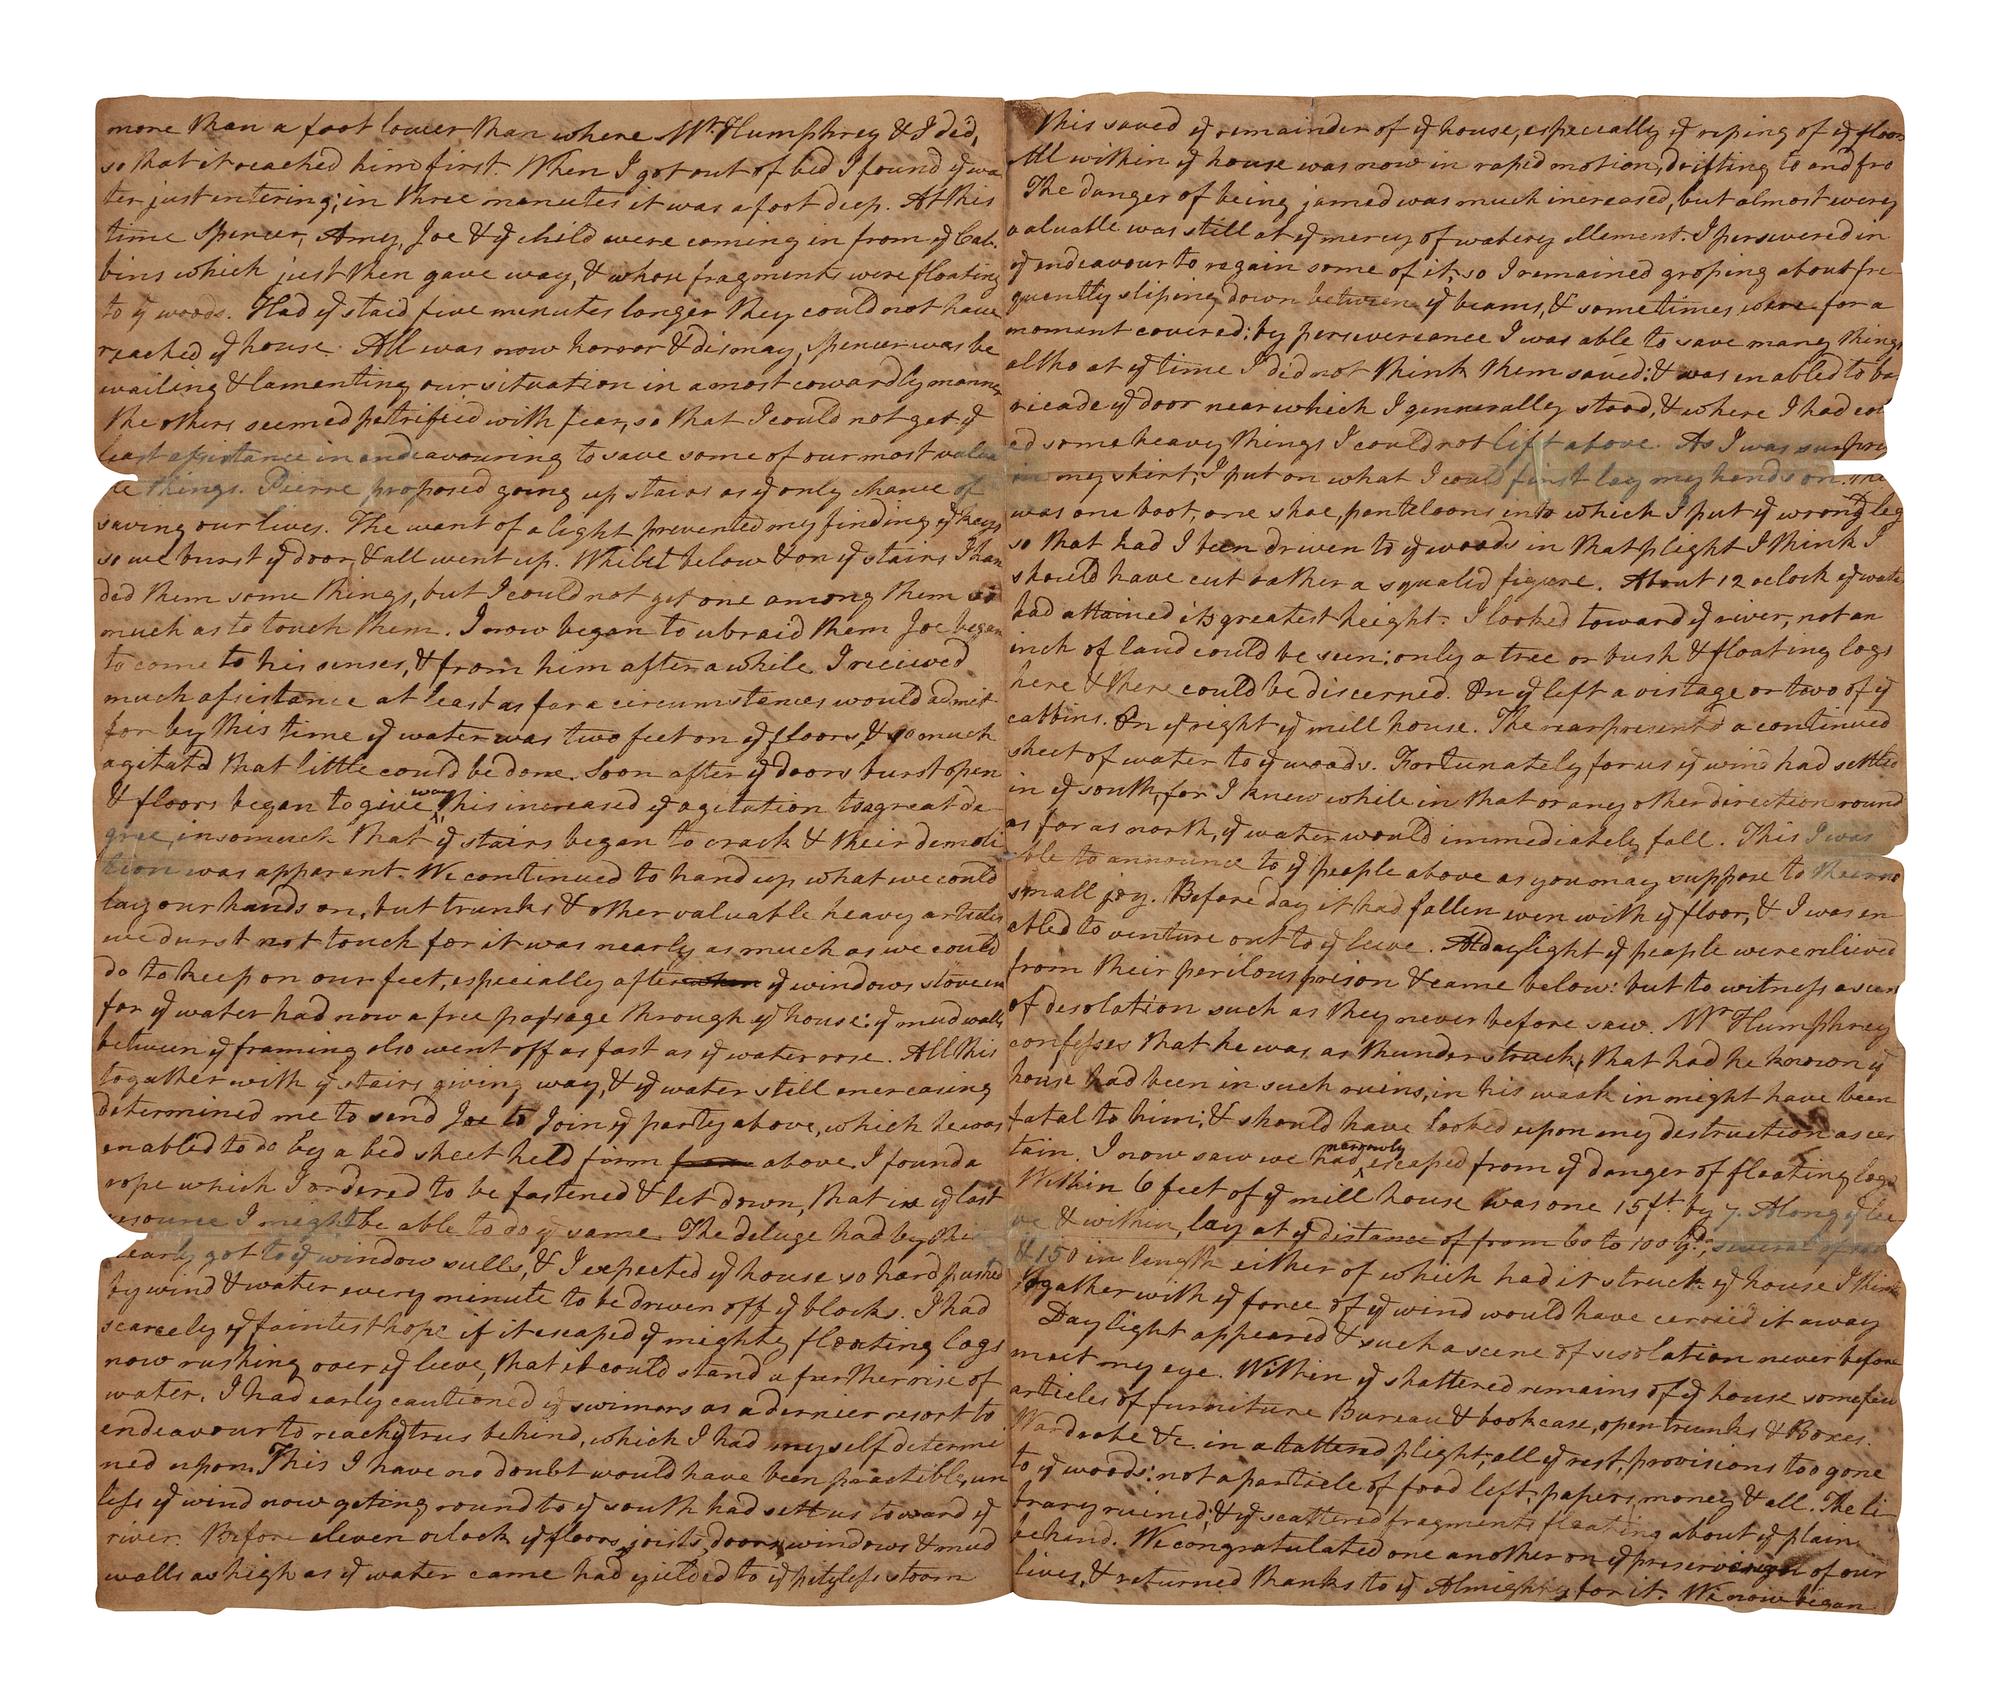 more than a foot lower than where Mr. Humphrey & I did,
so that it reached him first. When I got out of bed I found ye wa
ter just intering; in three menutes it was a foot deep. At this
time Spencer, Amy, Joe & ye child were coming in from ye Cab-
bins which just then gave way, & whose fragments were floating
to ye woods. Had ye staid five minutes longer they could not have
reached ye house. All was now horror & dismay, Spencer was be
wailing & lamenting our situation in a most cowardly manner
the others seemed petrified with fear, so that I could not get ye
least assistance in endeavouring to save some of our most valua
le things. Pierre proposed going up stairs as ye only chance of
saving our lives. The want of a light prevented my finding ye keys
so we burst ye door, & all went up. Whilst below & on ye stairs I han
ded them some things, but I could not get one among them so
much as to touch them. I now began to ubraid them Joe began
to come to his senses, & from him after a while I recieved
much assistance at least as far a circumstances would admit
for by this time ye water was two feet on ye floors, & so much
agitatd that little could be done. Soon after ye doors burst open
& floors began to give way, this increased ye agitation to a great de-
gree, insomuch that ye stairs began to crack & their demoli
tion was apparent. We continued to hand up what we could
lay our hands on, but trunks & other valuable heavy articles
we durst not touch for it was nearly as much as we could
do to keep on our feet, especially after when ye windows stove in
for ye water had now a free passage through ye house: ye mud walls
between ye framing also went off as fast as ye water rose. All this
togather with ye stairs giving way, & ye water still encreasing
determined me to send Joe to join ye party above, which he was
enabled to do by a bed sheet held firm from above. I found a
rope which I ordered to be fastened & let down, that in ye last
resource I might be able to do ye same. The deluge had by this
nearly got to ye window sills, & I expected ye house so hard pushed
by wind & water every minute to be driven off ye blocks. I had
scarcely ye faintest hope if it escaped ye mighty floating logs
now rushing over ye levee, that it could stand a further rise of
water. I had early cautioned ye swimers as a dernier resort to
endeavour to reach ye trees behind, which I had myself determi
ned upon. This I have no doubt would have been practible, un
less ye wind now geting round to ye south had sett us toward ye
river. Before eleven oclock ye floors, joists, doors, windows & mud
walls as high as ye water came had yielded to ye pityless storm
This saved ye remainder of ye house, especially ye riping of ye floors
All within ye house was now in raped motion, drifting to and fro
The danger of being jamed was much increased, but almost every
valuable was still at ye mercy of watery ellement. I persevered in
ye endeavour to regain some of it, so I remained groping about fre-
quently sliping down between ye beams, & sometimes were for a
moment covered: by perseverence I was able to save many things
altho at ye time I did not think them saved: & was enabled to ba-
ricade ye door near which I gennerally stood, & where I had
ed some heavy things I could not lift above. As I was
in my shirt, I put on what I could first lay my hands on.
was one boot, one shoe, panteloons into which I put ye wrong leg
so that had I been driven to ye woods in that plight I think I
should have cut rather a squalid figure. About 12 oclock ye water
had attained its greatest height. I looked toward ye river, not an
inch of land could be seen: only a tree or bush & floating logs
here & there could be discerned. On ye left a vistage or two of ye
cabbins. On ye right ye mill house. The rear presentd a continued
sheet of water to ye woods. Fortunately for us ye wind had settled
in ye south, for I knew while in that or any other direction round
as far as north, ye water would immediately fall. This I was
ble to announce to ye people above as you may suppose to their no
small joy. Before day it had fallen even with ye floor, & I was en-
abled to venture out to ye levee. At daylight ye people were relieved
from their perilous prison & came below: but to witness a scene
of desolation such as they never before saw. Mr Humphrey
confesses that he was as thunderstruck, that had he known ye
house had been in such ruins, in his weak in might have been
fatal to him; & should have looked upon my destruction as cer
tain. I now saw we had narrowly escaped from ye danger of floating logs
Within 6 feet of ye mill house was one 15 ft. by 7. Along ye lee
ve & within, lay at ye distance of from 60 to 100 yds, several of
& 150 in length either of which had it struck ye house I think
togather with ye force of ye wind would have carried it away
Daylight appeared & such a scene of desolation never before
meet my eye. Within ye shattered remains of ye house some few
articles of furniture Bureau & bookcase, open trunks & Boxes.
Wardrobe &c. in a tatterd plight, all ye rest, provisions too gone
to ye woods: not a particle of food left, papers, money & all. The li-
brary ruined, & ye scattered fragments floating about ye plain
behind. We congratulated one another on ye of our
lives, & returned thanks to ye Almighty for it. We now began